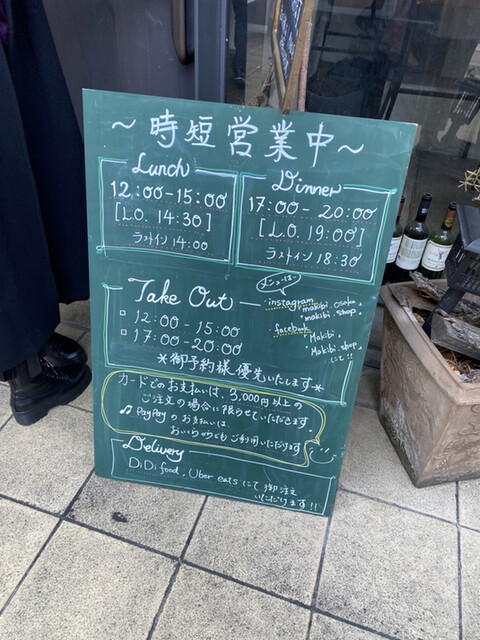 ～時短営業中～
Lunch
12:00-15:00
[L.O. 14:30]
ラストイン 14:00
Dinner
17:00- 20:00
[L.O. 19:00]
ラストイン 18:30
Take Out
12:00 - 15:00
17:00-20:00
*御予約様優先いたします*
メニューは
・instagram
"makibi.osaka
"makibi.shop"
・facebook
"Makibi"
"Makibi.shop"
にて!!
カードでのお支払いは、3,000円以上の
ご注文の場合に限らせていただきます。
♫ PayPay のお支払いは、
おいくらからでもご利用いただけます
Delivery
DiDi food, Uber eats にて御注文
いただけます!!